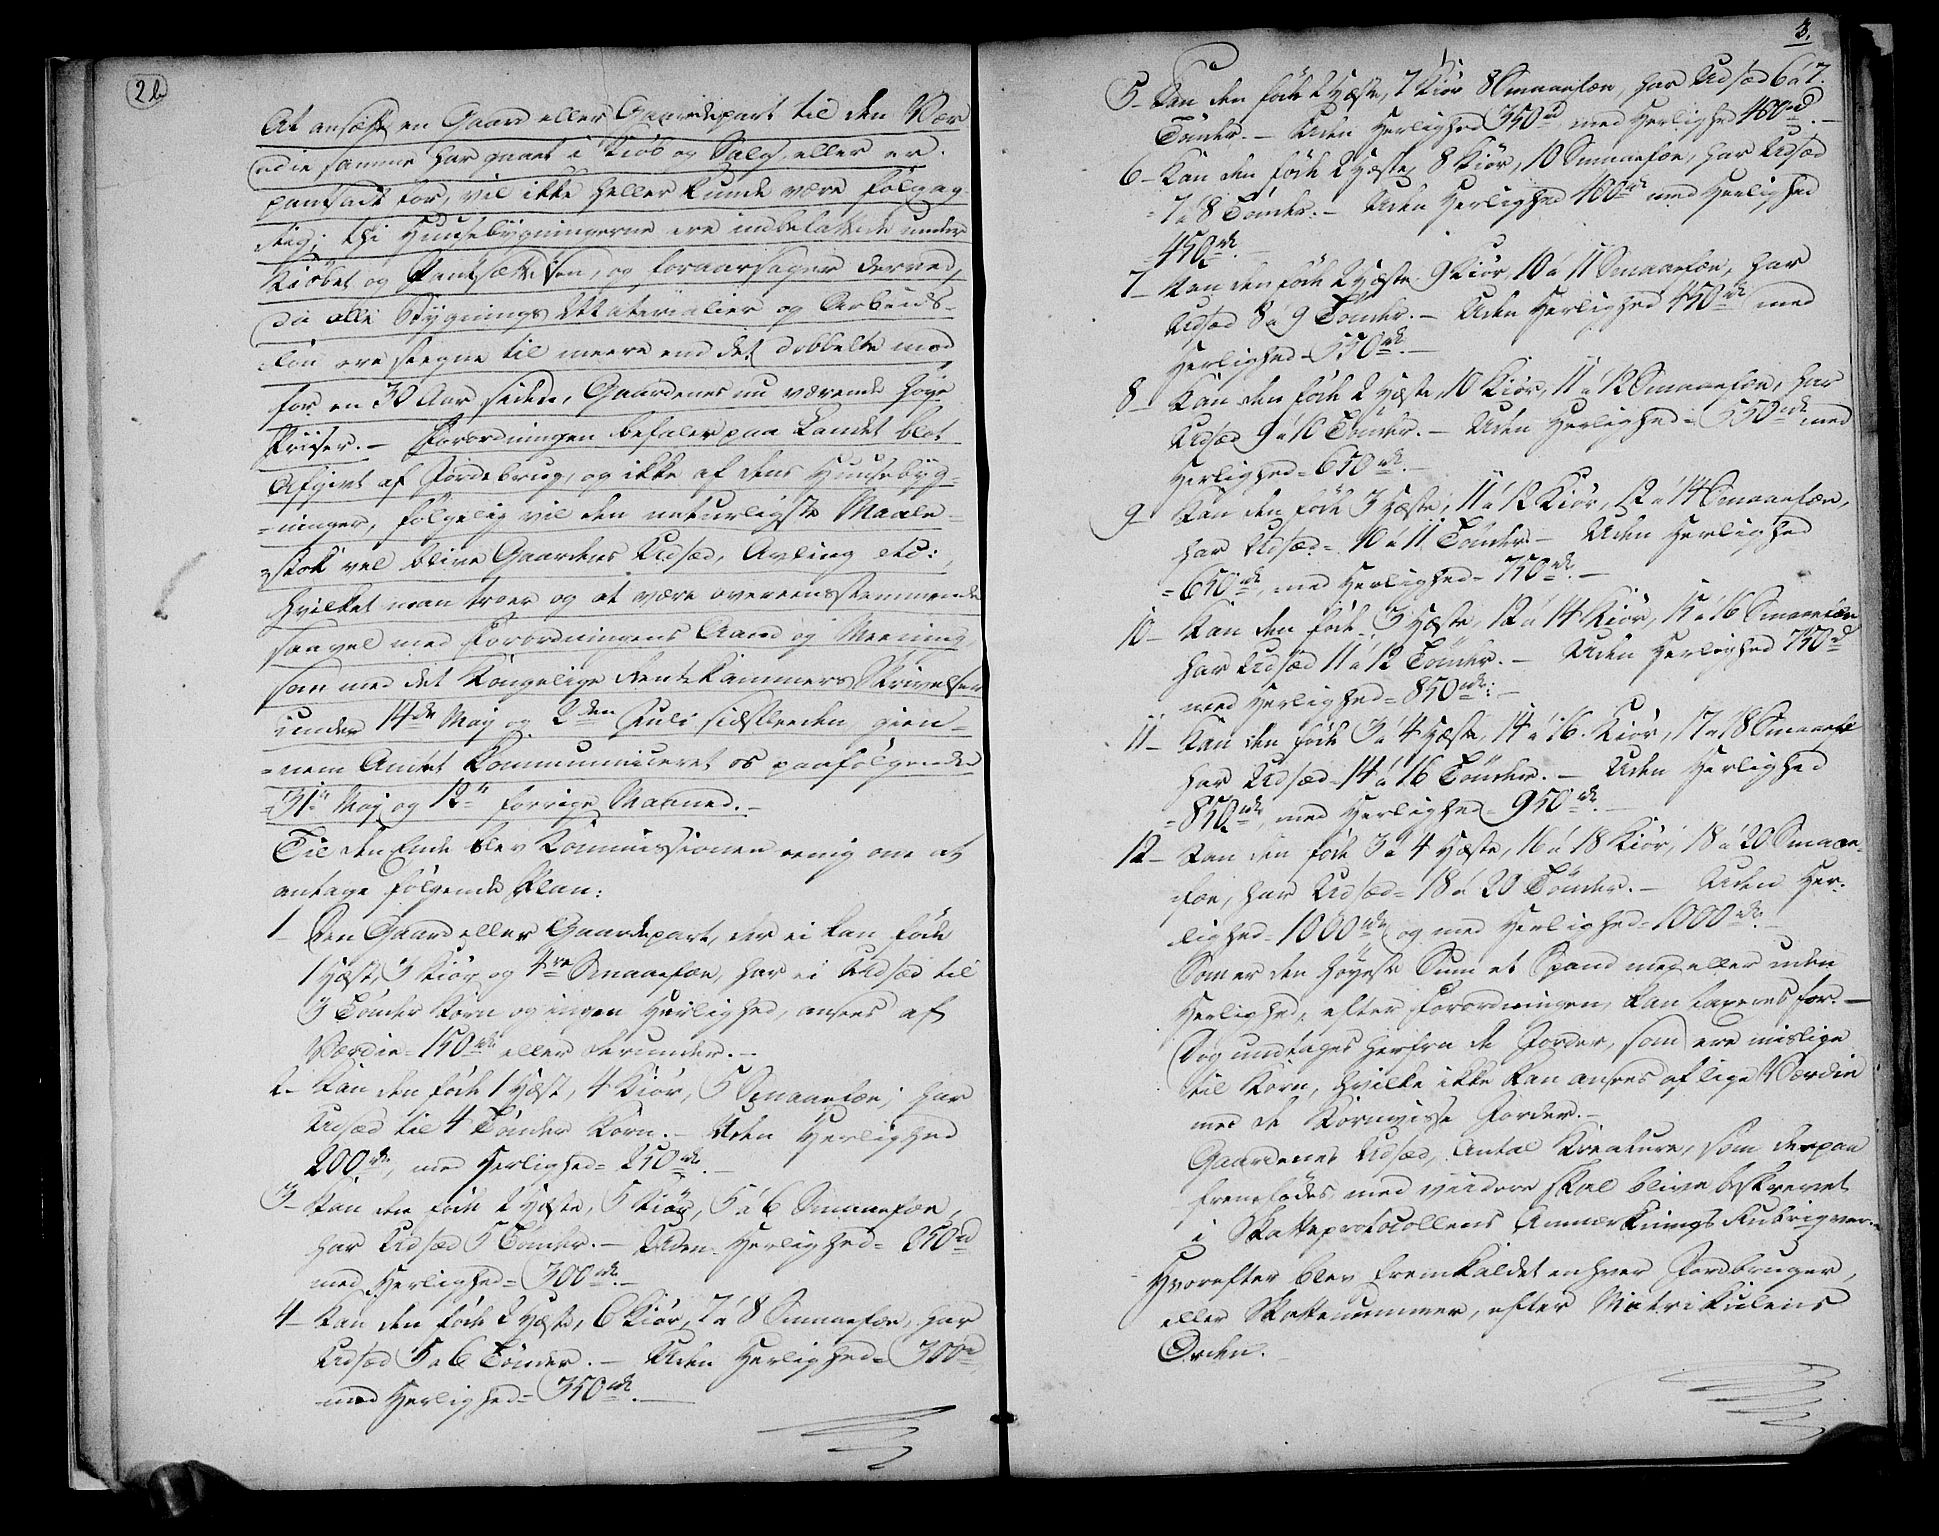 2b
At ansætte en Gaard eller Gaardepart til den Vær
die samme har gaaet i Kiøb og Salg, eller er
pantsadt for, vil ikke heller kunde være følgag-
tig; thi Huusebygningerne ere indbefattede under
Kiøbet og Pantsættelsen, og foraarsager derved,
da alle Bygnings Materialier og Arbeids-
løn ere steegne til meere end det dobbelte mod
for en 30 Aar siden, Gaardenes nu værende høye
Priiser. - Forordningen befaler paa Landet blot
Afgivt af Jordebrug, og ikke af dens Huusebyg-
=ninger, følgelig vil den naturligste Maale-
stok vel blive Gaardens Udsæd, Avling etc:,
hvilket man troer og at være overeensstemmende
saavel med Forordningens Aand og Meening,
som med det Kongelige Rentekammers Skrivelser
under 14de Maj og 2den Juli sidstleeden, gien-
=nem Amtet Kommuniceret os paafølgende
=31te Maj og 12te forrige Maaned. -
Til den Ende blev Kommissionen eenig om at
antage følgende Plan:
1 - Den Gaard eller Gaardepart, der ei kan føde
1 Hæst, 3 Kiør og 4re Smaafæe, har ei Udsæd til
3 Tønder Korn og ingen Herlighed, ansees af
Værdie = 150 rd. eller derunder. -
2 - Kan den føde 1 Hæst, 4 Kiør, 5 Smaafæe, har
Udsæd til 4 Tønder Korn. - Uden Herlighed
200 rd., med Herlighed = 250 rd. -
3 - Kan den føde 2 Hæste, 5 Kiør, 5 à 6 Smaafæe,
har Udsæd 5 Tønder. - Uden Herlighed = 250 rd
med Herlighed = 300 rd. -
4 - Kan den føde 2 Hæste, 6 Kiør, 7 à 8 Smaafæe, har
Udsæd 5 à 6 Tønder. - Uden Herlighed = 300 rd,
med Herlighed = 350 rd. -
3.
5 - Kan den føde 2 Hæste, 7 Kiør 8 Smaafæe, har Udsæd 6 à 7
Tønder. - Uden Herlighed 350 rd, med Herlighed 400 rd. -
6 - Kan den føde 2 Hæste, 8 Kiør, 10 Smaafæe, har Udsæd
=7 à 8 Tønder. - Uden Herlighed 400 rd med Herlighed
450 rd. -
7 - Kan den føde 2 Hæste 9 Kiør, 10 à 11 Smaafæe, har
Udsæd 8 à 9 Tønder. - Uden Herlighed 450 rd med
Herlighed = 550 rd. -
8 - Kan den føde 2 Hæste, 10 Kiør, 11 à 12 Smaafæe, har
Udsæd 9 à 10 Tønder. - Uden Herlighed = 550 rd med
Herlighed = 650 rd. -
9 - Kan den føde 3 Hæste, 11 à 12 Kiør, 12 à 14 Smaafæe,
har Udsæd = 10 à 11 Tønder - Uden Herlighed
=650 rd, med Herlighed = 750 rd. -
10 - Kan den føde 3 Hæste, 12 à 14 Kiør, 15 à 16 Smaafæe
har Udsæd 11 à 12 Tønder. - Uden Herlighed 750 rd
med Herlighed = 850 rd: -
11 - Kan den føde 3 à 4 Hæste, 14 à 16 Kiør, 17 à 18 Smaafæ
har Udsæd = 14 à 16 Tønder. - Uden Herlighed
=850 rd, med Herlighed = 950 rd. -
12 - Kan den føde 3 à 4 Hæste, 16 à 18 Kiør, 18 à 20 Smaa-
fæe, har Udsæd = 18 à 20 Tønder. - Uden Her-
lighed = 1000 rd og med Herlighed = 1000 rd. -
Som er den høyeste Sum et Spand med eller uden
Herlighed, efter Forordningen, kan taxeres for. -
Dog undtages herfra de Jorder, som ere mislige
til Korn, hvilke ikke kan ansees af lige Værdie
med de Kornvisse Jorder. -
Gaardenes Udsæd, Antal Kreature, som derpaa
fremfødes med viidere skal blive beskrevet
i Skatteprotocollens Anmærknings Rubriqver. -
Hvorefter blev fremkaldet enhver Jordbruger,
eller Skattenummer, efter Matrikulens
Orden. -